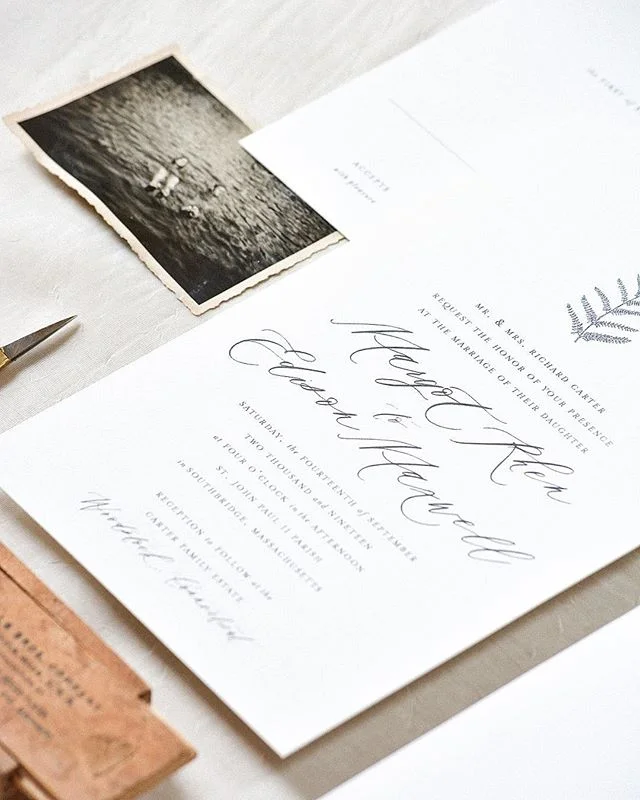 ACCEPTS
with pleasure
MR. & MRS. RICHARD CARTER
REQUEST THE HONOR OF YOUR PRESENCE
AT THE MARRIAGE OF THEIR DAUGHTER
Margot Rhea
to
Edison Maxwell
SATURDAY, the FOURTEENTH of SEPTEMBER
TWO THOUSAND and NINETEEN
at FOUR O'CLOCK in the AFTERNOON
ST. JOHN PAUL II PARISH
in SOUTHBRIDGE, MASSACHUSETTS
RECEPTION to FOLLOW at the
CARTER FAMILY ESTATE
Woodstock, Connecticut